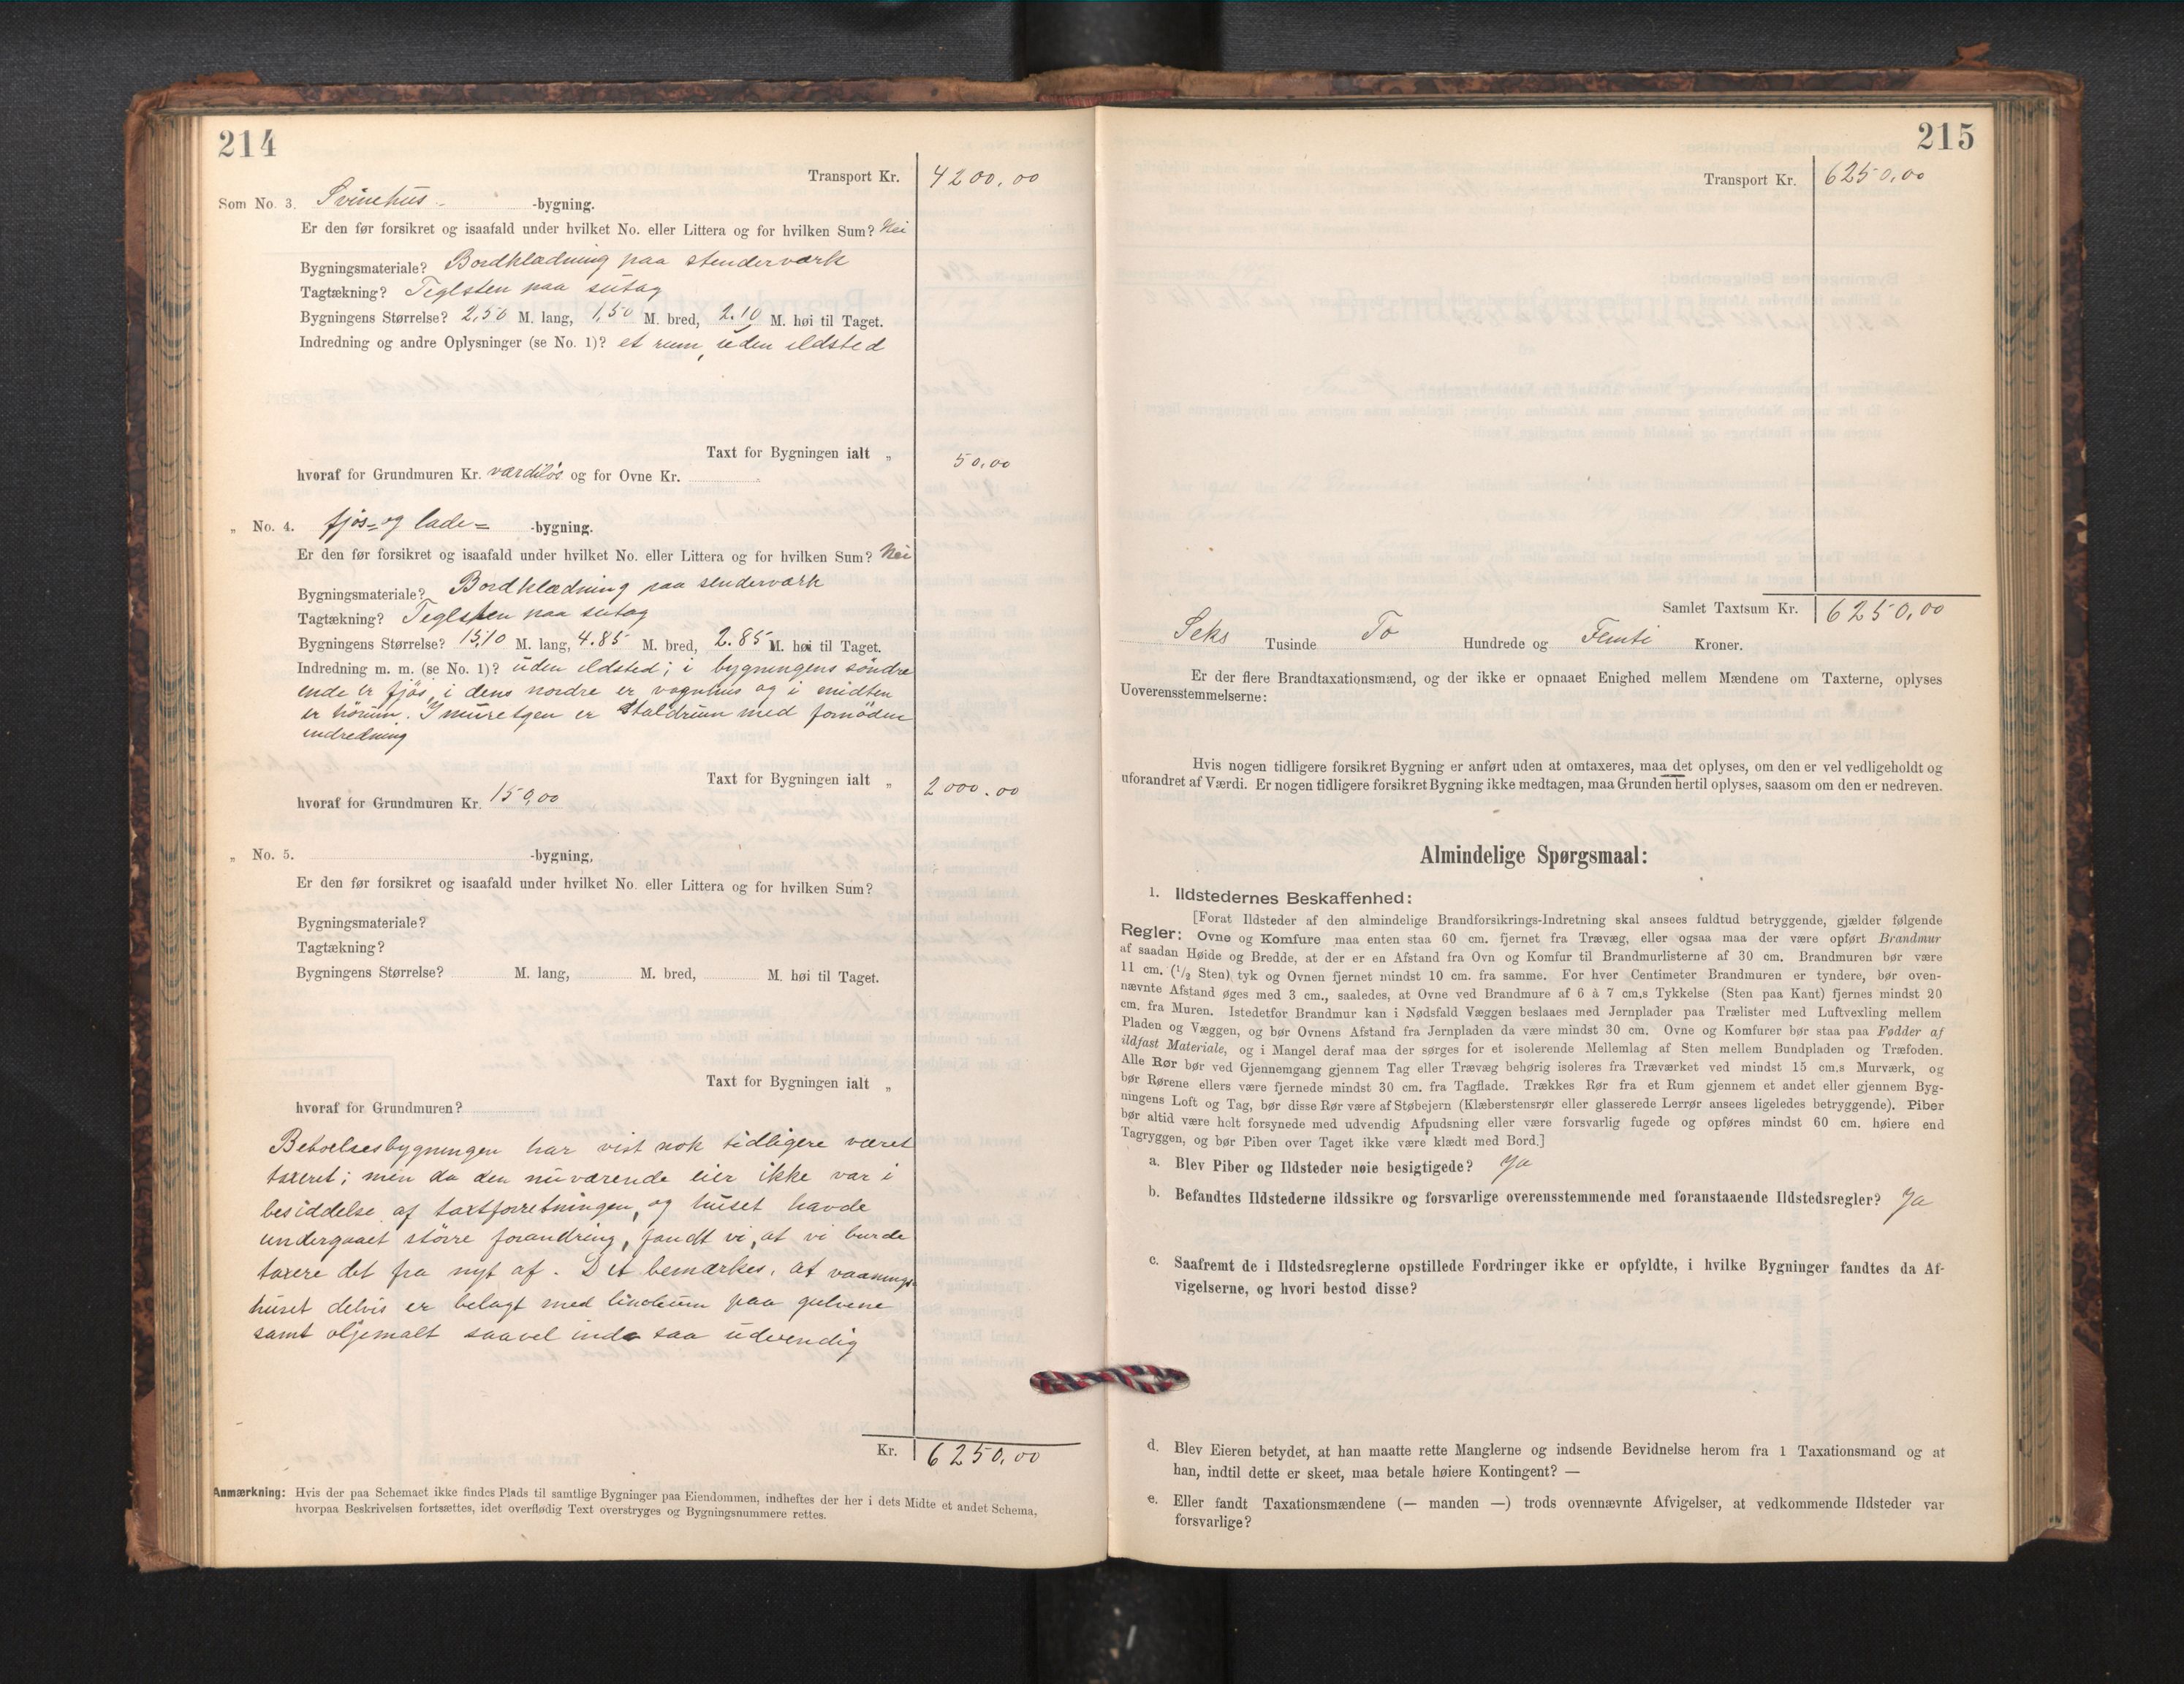 214
Transport Kr. 4200,00
Som No. 3. Svinehus - -bygning.
Er den før forsikret og isaafald under hvilket No. eller Littera og for hvilken Sum? Nei
Bygningsmateriale? Bordklædning paa stenderværk
Tagtækning? Teglsten paa sutag
Bygningens Størrelse? 2,50 M. lang, 1,50 M. bred, 2.10 M. høi til Taget.
Indredning og andre Oplysninger (se No. 1)? et rum, uden ildsted
Taxt for Bygningen ialt „ 50,00
hvoraf for Grundmuren Kr. værdiløs og for Ovne Kr. „
„ No. 4. fjøs- og lade- -bygning.
Er den før forsikret og isaafald under hvilket No. eller Littera og for hvilken Sum? Nei
Bygningsmateriale? Bordklædning paa stenderværk
Tagtækning? Teglsten paa sutag
Bygningens Størrelse? 15,10 M. lang, 4.85 M. bred, 2.85 M. høi til Taget.
Indredning m. m. (se No. 1)? uden ildsted; i bygningens søndre
ende er fjøs, i dens nordre er vognhus og i midten
er hørum. I muretgen er staldrum med fornøden
indredning
Taxt for Bygningen ialt „ 2000.00
hvoraf for Grundmuren Kr. 150,00
„ No. 5. -bygning,
Er den før forsikret og isaafald under hvilket No. eller Littera og for hvilken Sum?
Bygningsmateriale?
Tagtækning?
Bygningens Størrelse? M. lang, M. bred, M. høi til Taget.
Taxt for Bygningen ialt „
hvoraf for Grundmuren?
Beboelsesbygningen har vist nok tidligere været
taxeret; men da den nuværende eier ikke var i
besiddelse af taxtforretningen, og huset havde
undergaaet större forandring, fandt vi, at vi burde
taxere det fra nyt af. Det bemærkes, at vaanings-
huset delvis er belagt med linoleum paa gulvene
samt oljemalt saavel ind- saa udvendig
Kr. 6250,00
Anmærkning: Hvis der paa Schemaet ikke findes Plads til samtlige Bygninger paa Eiendommen, indheftes der her i dets Midte et andet Schema,
hvorpaa Beskrivelsen fortsættes, idet overflødig Text overstryges og Bygningsnummere rettes.
215
Transport Kr. 6250,00
Samlet Taxtsum Kr. 6250,00
Seks Tusinde To Hundrede og Femti Kroner.
Er der flere Brandtaxationsmænd, og der ikke er opnaaet Enighed mellem Mændene om Taxterne, oplyses
Uoverensstemmelserne:
Hvis nogen tidligere forsikret Bygning er anført uden at omtaxeres, maa det oplyses, om den er vel vedligeholdt og
uforandret af Værdi. Er nogen tidligere forsikret Bygning ikke medtagen, maa Grunden hertil oplyses, saasom om den er nedreven.
Almindelige Spørgsmaal:
1. Ildstedernes Beskaffenhed:
[Forat Ildsteder af den almindelige Brandforsikrings-Indretning skal ansees fuldtud betryggende, gjælder følgende
Regler: Ovne og Komfure maa enten staa 60 cm. fjernet fra Trævæg, eller ogsaa maa der være opført Brandmur
af saadan Høide og Bredde, at der er en Afstand fra Ovn og Komfur til Brandmurlisterne af 30 cm. Brandmuren bør være
11 cm. (1/2 Sten) tyk og Ovnen fjernet mindst 10 cm. fra samme. For hver Centimeter Brandmuren er tyndere, bør oven-
nævnte Afstand øges med 3 cm., saaledes, at Ovne ved Brandmure af 6 à 7 cm.s Tykkelse (Sten paa Kant) fjernes mindst 20
cm. fra Muren. Istedetfor Brandmur kan i Nødsfald Væggen beslaaes med Jernplader paa Trælister med Luftvexling mellem
Pladen og Væggen, og bør Ovnens Afstand fra Jernpladen da være mindst 30 cm. Ovne og Komfurer bør staa paa Fødder af
ildfast Materiale, og i Mangel deraf maa der sørges for et isolerende Mellemlag af Sten mellem Bundpladen og Træfoden.
Alle Rør bør ved Gjennemgang gjennem Tag eller Trævæg behørig isoleres fra Træværket ved mindst 15 cm.s Murværk, og
bør Rørene ellers være fjernede mindst 30 cm. fra Tagflade. Trækkes Rør fra et Rum gjennem et andet eller gjennem Byg-
ningens Loft og Tag, bør disse Rør være af Støbejern (Klæberstensrør eller glasserede Lerrør ansees ligeledes betryggende). Piber
bør altid være helt forsynede med udvendig Afpudsning eller være forsvarlig fugede og opføres mindst 60 cm. høiere end
Tagryggen, og bør Piben over Taget ikke være klædt med Bord.]
a. Blev Piber og Ildsteder nøie besigtigede? Ja
b. Befandtes Ildstederne ildssikre og forsvarlige overensstemmende med foranstaaende Ildstedsregler? Ja
c. Saafremt de i Ildstedsreglerne opstillede Fordringer ikke er opfyldte, i hvilke Bygninger fandtes da Af-
vigelserne, og hvori bestod disse?
d. Blev Eieren betydet, at han maatte rette Manglerne og indsende Bevidnelse herom fra 1 Taxationsmand og at
han, indtil dette er skeet, maa betale høiere Kontingent? —
e. Eller fandt Taxationsmændene (— manden —) trods ovennævnte Afvigelser, at vedkommende Ildsteder var
forsvarlige?